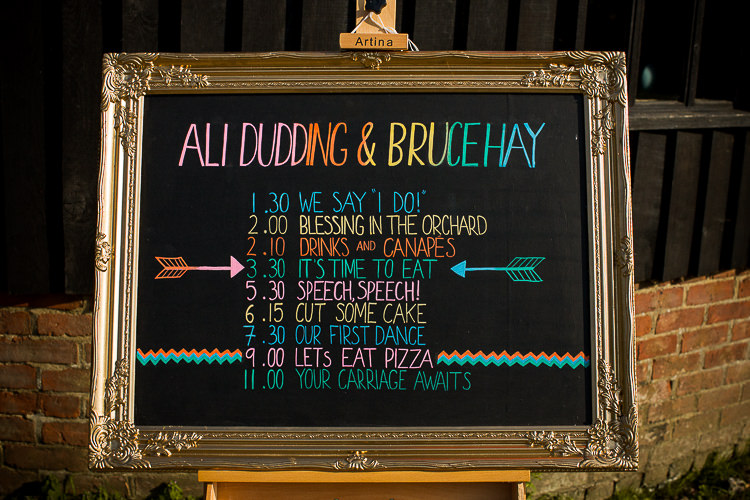 Artina
ALI DUDDING & BRUCE HAY
1.30 WE SAY "I DO!"
2.00 BLESSING IN THE ORCHARD
2.10 DRINKS AND CANAPÉS
3.30 IT'S TIME TO EAT
5.30 SPEECH, SPEECH!
6.15 CUT SOME CAKE
7.30 OUR FIRST DANCE
9.00 LETS EAT PIZZA
11.00 YOUR CARRIAGE AWAITS